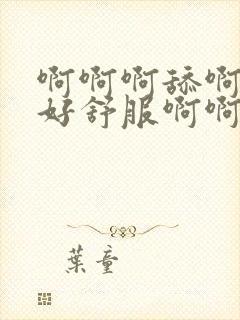 啊啊啊舔啊
好舒服啊啊
葉童